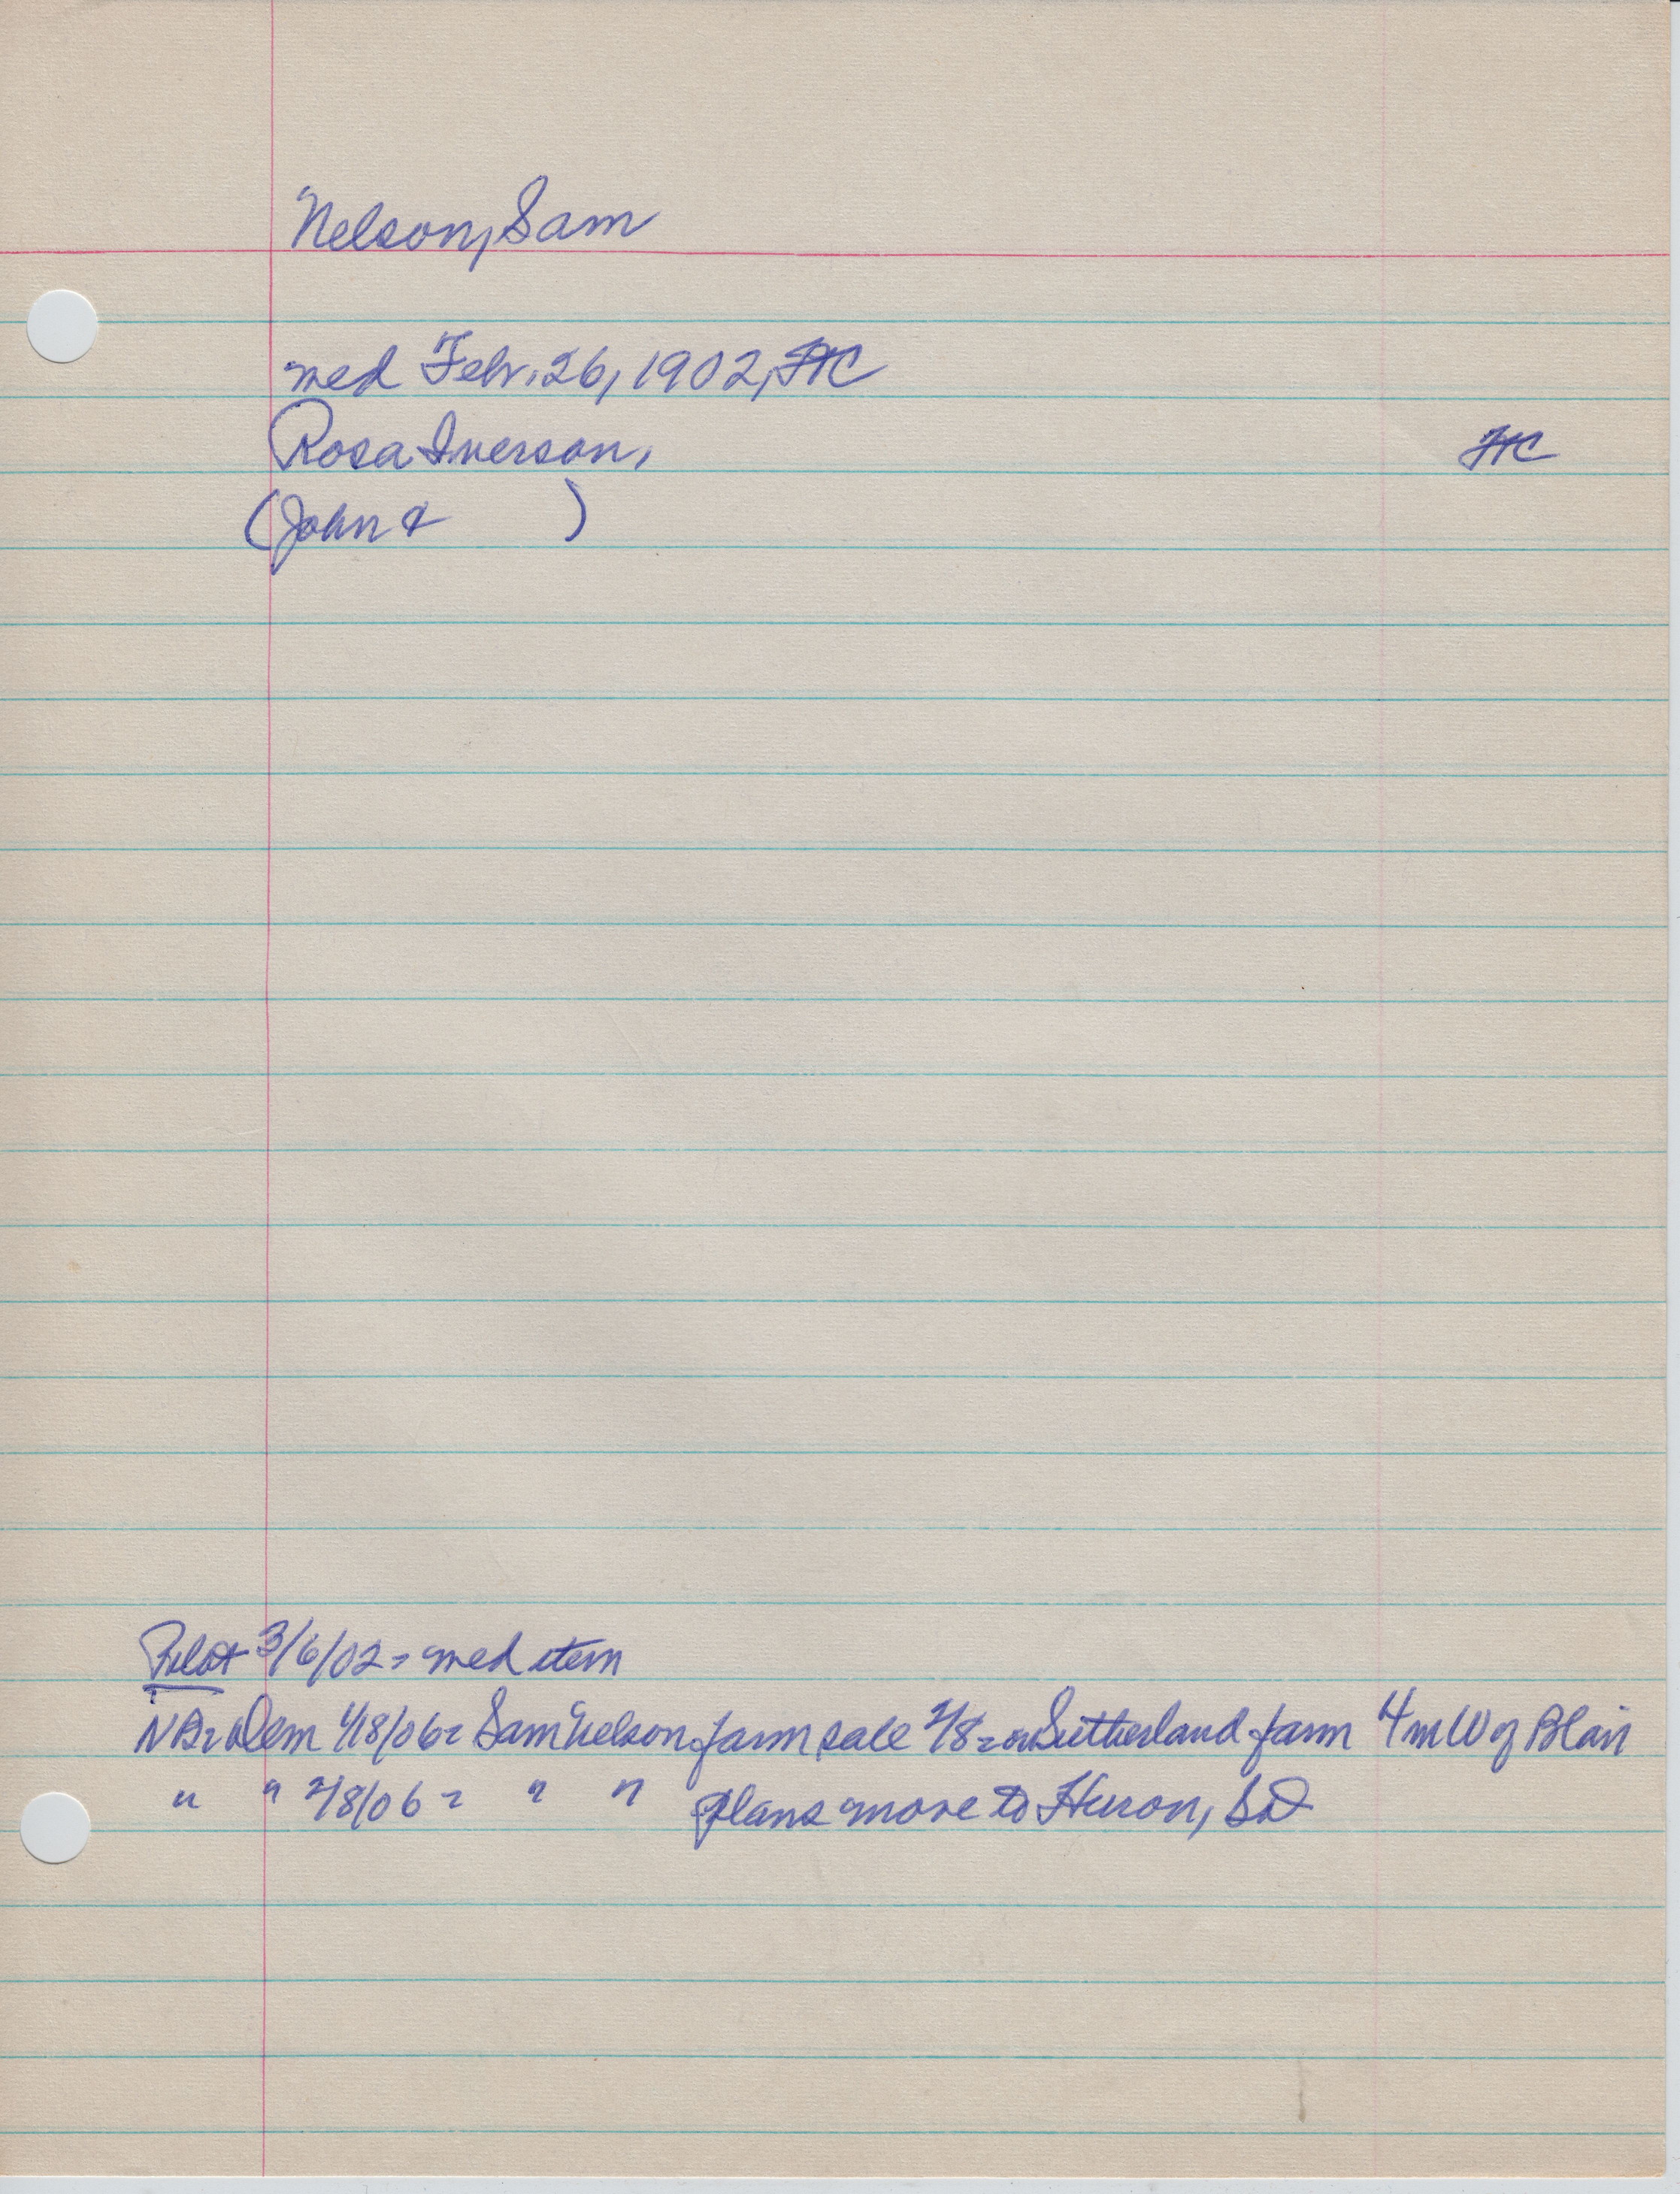 Nelson, Sam
med Febr. 26, 1902, FtC
Rosa Iverson, FtC
(John & )
Pilot 3/6/02 = med item
Dem 1/18/06 = Sam Nelson farm sale 2/8 = on Sutherland farm 4 m W of Blair
" " 2/8/06 = " " plans move to Huron, SD